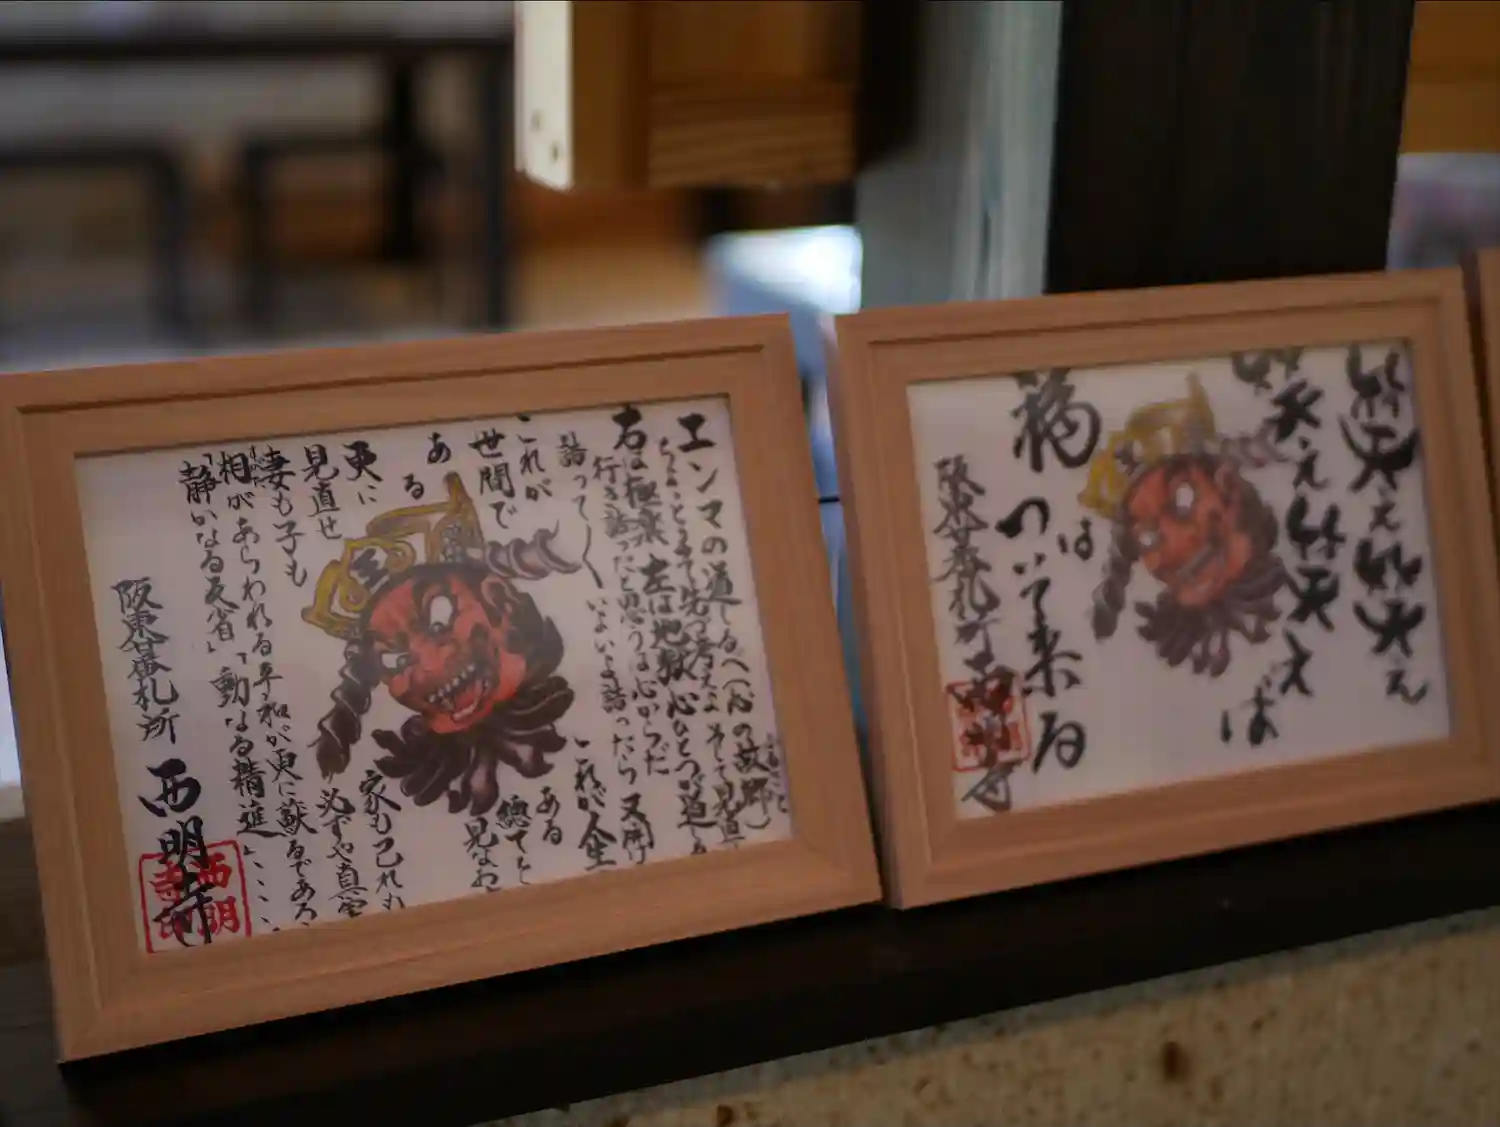 エンマの道しるべ(心の故郷)
ちょっとまて先づ考えよ そして見直
右は極楽 左は地獄 心ひとつが道しる
行き詰ったと思うは心からだ
詰って〱いよいよ詰ったら 又開け
これが
世間で
ある
これが人生
ある
総てを
見なお
更に
見直せ
妻も子も
家も己れも
必ずや真実
相があらわれる平和が更に訪るである
「静かなる反省」「動なる精進」、、、、
阪東廿番札所 西明寺
西明
寺印
笑え笑え
笑え笑えば
福は
ついて来る
阪東廿番札所 西明寺